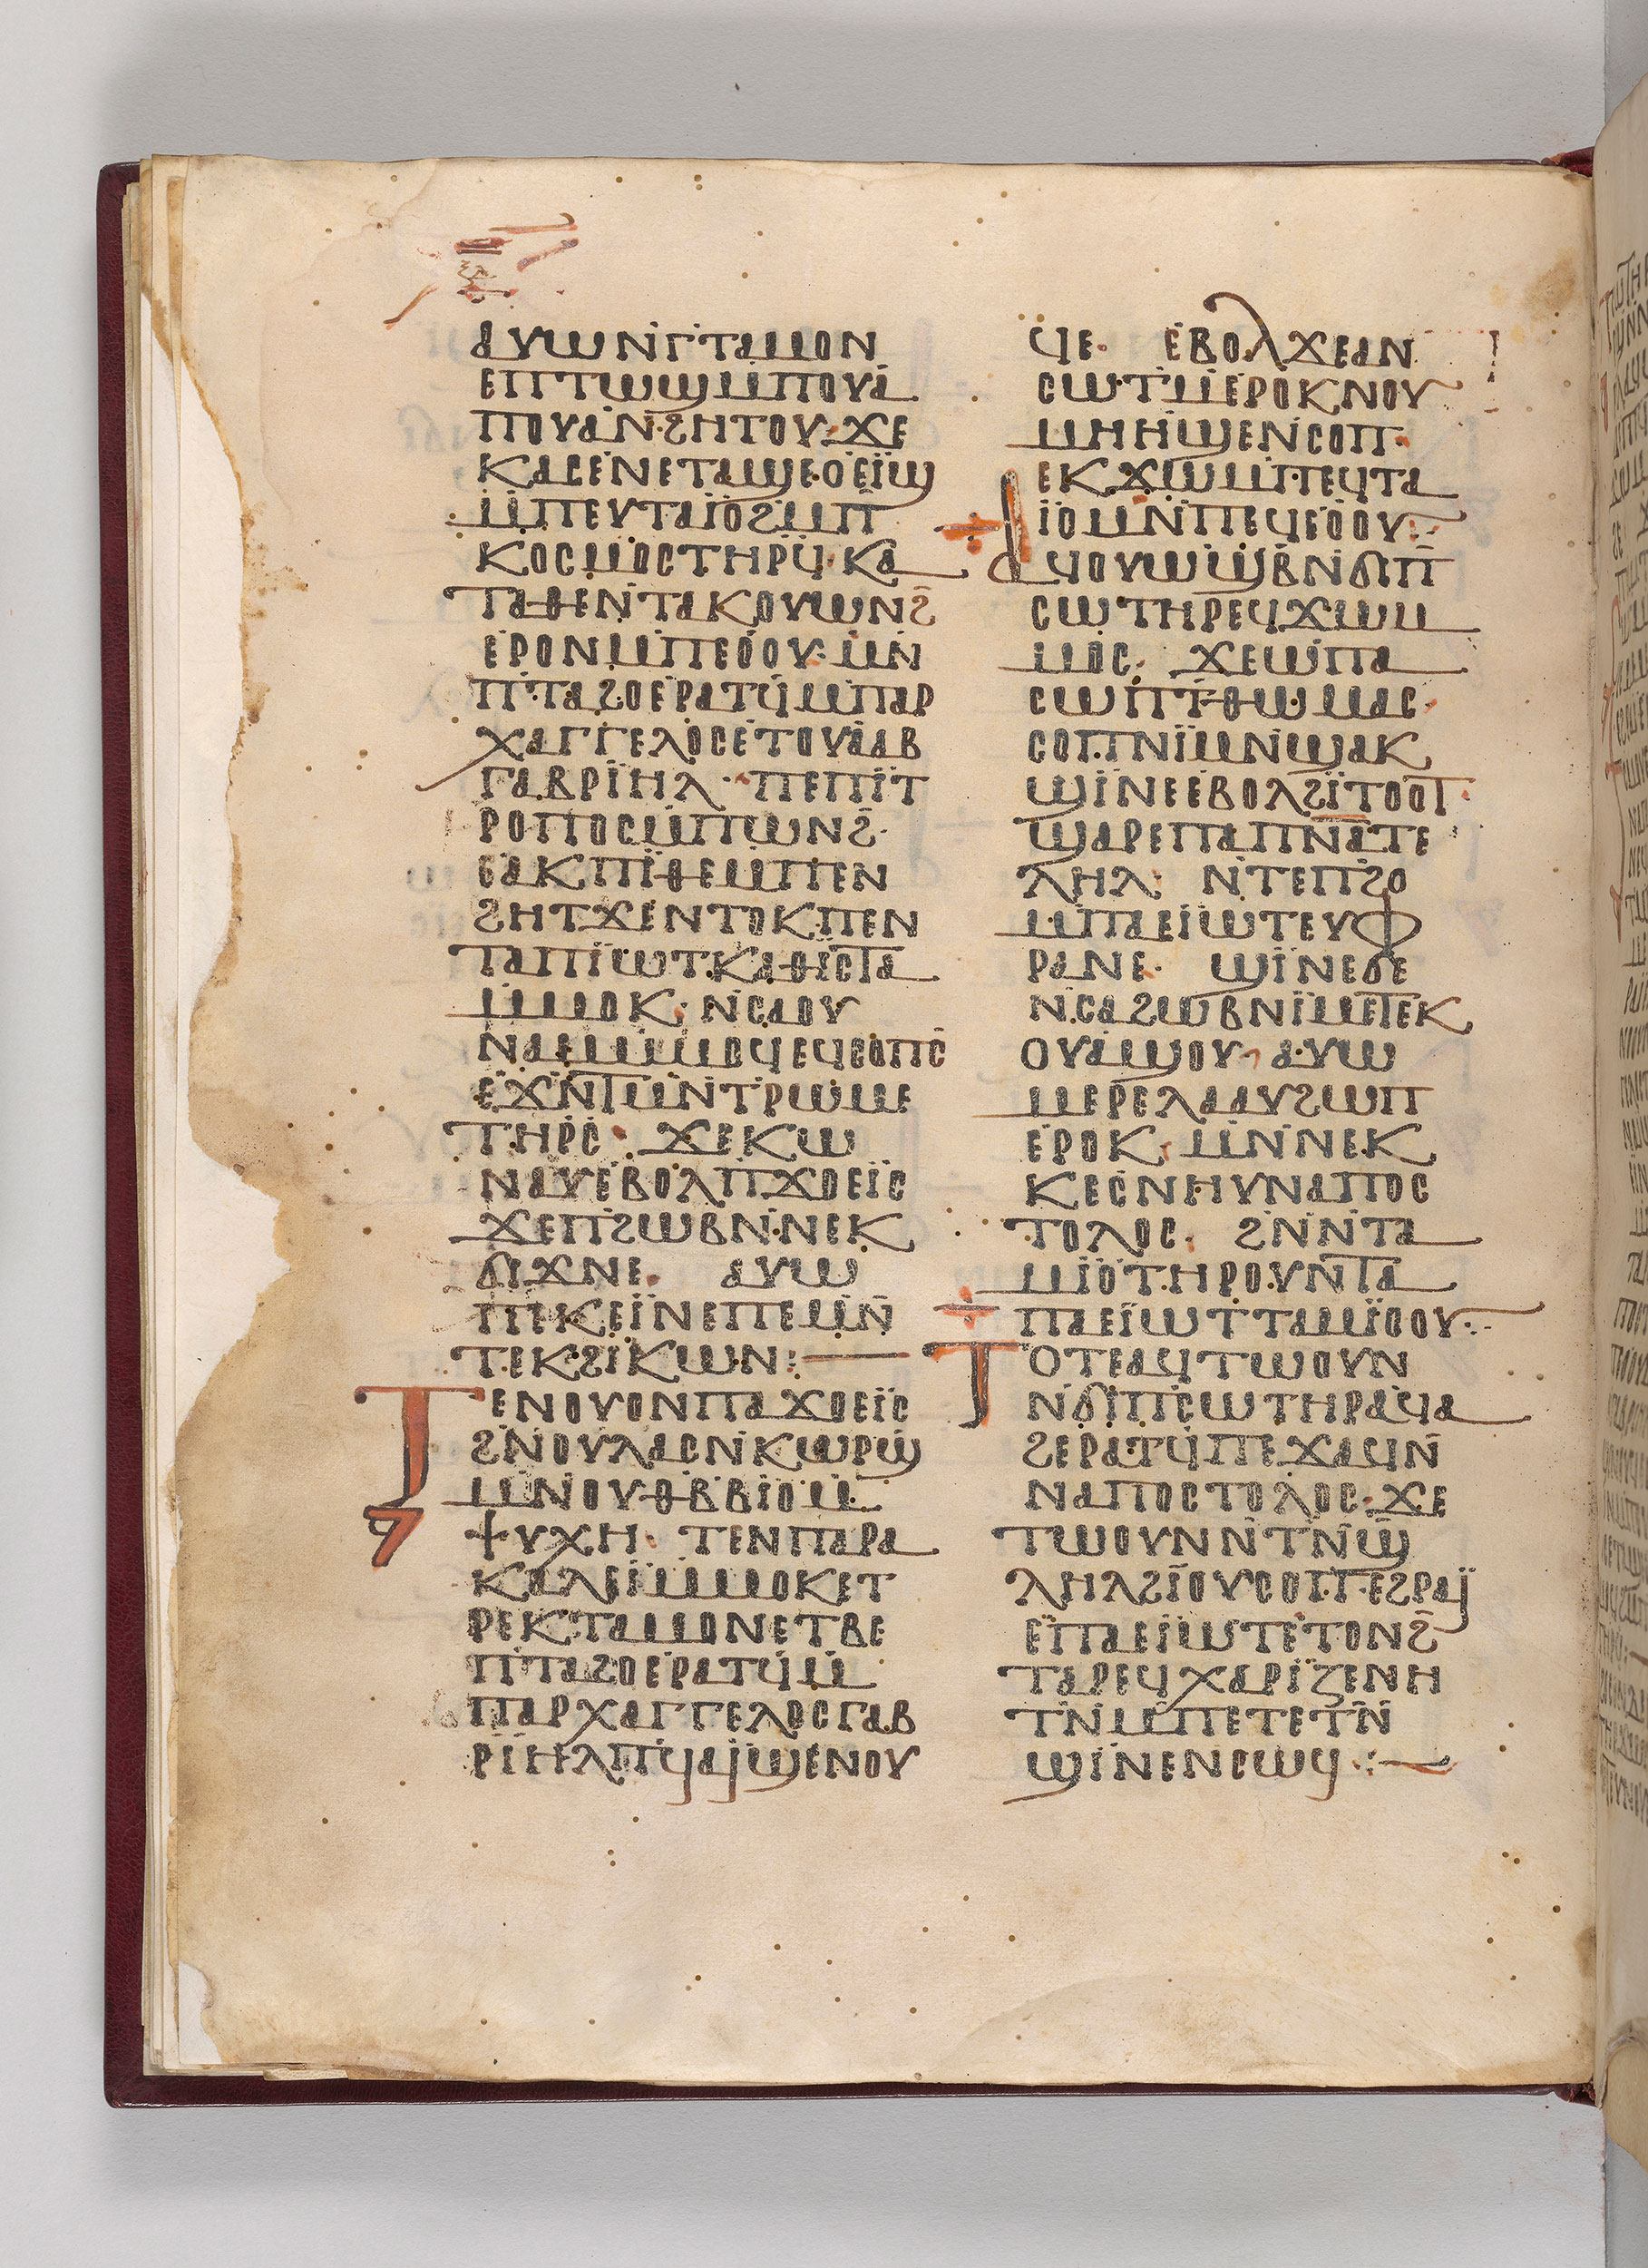 ⲁⲩⲱⲛⲅ̄ⲧⲁⲙⲟⲛ
ⲉⲡⲧⲱϣⲙ̇ⲡⲟⲩⲁ
ⲡⲟⲩⲁⲛ̇ϩⲏⲧⲟⲩ· ϫⲉ
ⲕⲁⲥⲉⲛⲉⲧⲁϣⲉⲟⲉⲓ̈ϣ
ⲙ̇ⲡⲉⲩⲧⲁⲓ̈ⲟϩⲙ̇ⲡ̄
ⲕⲟⲥⲙⲟⲥⲧⲏⲣϥ̇· ⲕⲁ
ⲧⲁⲑⲉⲛ̇ⲧⲁⲕⲟⲩⲱⲛϩ̄
ⲉⲣⲟⲛⲙ̇ⲡⲉⲟⲟⲩ· ⲙⲛ̇
ⲡ̇ⲧⲁϩⲟⲉⲣⲁⲧϥ̇ⲙ̇ⲡⲁⲣ
ⲭⲁⲅⲅⲉⲗⲟⲥⲉⲧⲟⲩⲁⲁⲃ
ⲅⲁⲃⲣⲓ̈ⲏⲗ· ⲡⲉⲡⲓ̈ⲧ
ⲣⲟⲡⲟⲥⲙ̇ⲡⲱⲛϩ̄·
ⲉⲁⲕⲡⲓ̈ⲑⲉⲙ̇ⲡⲉⲛ
ϩⲏⲧϫⲉⲛ̇ⲧⲟⲕⲡⲉⲛ
ⲧⲁⲡⲓ̈ⲱⲧⲕⲁⲑⲓ̈ⲥⲧⲁ
ⲙ̇ⲙⲟⲕ· ⲛ̇ⲥⲁⲟⲩ
ⲛⲁⲙ̇ⲙⲟϥⲉϥⲥⲟⲡⲥ̄
ⲉϫⲛ̇ⲧⲙⲛ̇ⲧⲣⲱⲙⲉ
ⲧⲏⲣⲥ̇· ϫⲉⲕⲱ
ⲛⲁⲩⲉⲃⲟⲗⲡ̇ϫⲟⲉⲓ̈ⲥ
ϫⲉⲡ̇ϩⲱⲃⲛ̇ⲛⲉⲕ
ϭⲓϫⲛⲉ· ⲁⲩⲱ
ⲡⲉⲕⲉⲓ̈ⲛⲉⲡⲉⲙⲛ̄
ⲧⲉⲕϩⲓⲕⲱⲛ:—
ⲧⲉⲛⲟⲩⲟⲛⲡⲁϫⲟⲉⲓ̈ⲥ
ϩⲛ̇ⲟⲩⲗⲁⲥⲛ̇ⲕⲱⲣϣ̇
ⲙⲛ̇ⲟⲩⲑⲃ̇ⲃⲓⲟⲙ̇
ⲯⲩⲭⲏ· ⲧⲉⲛⲡⲁⲣⲁ
ⲕⲁⲗⲉⲓ̈ⲙ̇ⲙⲟⲕⲉⲧ
ⲣⲉⲕⲧⲁⲙⲟⲛⲉⲧⲃⲉ
ⲡ̇ⲧⲁϩⲟⲉⲣⲁⲧϥ̇ⲙ̇
ⲡⲁⲣⲭⲁⲅⲅⲉⲗⲟⲥⲅⲁⲃ
ⲣⲓ̈ⲏⲗⲡϥⲁⲓ̈ϣⲉⲛⲟⲩ
ϥⲉ· ⲉⲃⲟⲗϫⲉⲁⲛ
ⲥⲱⲧⲙ̇ⲉⲣⲟⲕⲛⲟⲩ
ⲙⲏⲏϣⲉⲛ̇ⲥⲟⲡ·
ⲉⲕϫⲱⲙ̇ⲡⲉϥⲧⲁ
ⲓ̈ⲟⲙⲛ̇ⲡⲉϥⲉⲟⲟⲩ:
ⲁϥⲟⲩⲱϣⲃ̇ⲛ̇ϭⲓⲡ̄
ⲥⲱⲧⲏⲣⲉϥϫⲱⲙ
ⲙⲟⲥ· ϫⲉⲱ̇ⲡⲁ
ⲥⲱⲧⲡ̇ⲑⲱⲙⲁⲥ·
ⲥⲟⲡⲛⲓ̈ⲙⲛ̇ϣⲁⲕ
ϣⲓ̇ⲛⲉⲉⲃⲟⲗϩⲓ̈ⲧⲟⲟⲧ·
ϣⲁⲣⲉⲡⲁⲡⲛ̄ⲁⲧⲉ
ⲗⲏⲗ· ⲛ̇ⲧⲉⲡϩⲟ
ⲙ̇ⲡⲁⲉⲓ̈ⲱⲧⲉⲩⲫ
ⲣⲁⲛⲉ· ϣⲓ̇ⲛⲉϭⲉ
ⲛ̇ⲥⲁϩⲱⲃⲛⲓ̈ⲙⲉⲧⲉⲕ
ⲟⲩⲁϣⲟⲩ· ⲁⲩⲱ
ⲙⲉⲣⲉⲗⲁⲁⲩϩⲱⲡ
ⲉⲣⲟⲕ· ⲙⲛ̇ⲛⲉⲕ
ⲕⲉⲥⲛⲏⲩⲛⲁⲡⲟⲥ
ⲧⲟⲗⲟⲥ· ϩⲛ̇ⲛ̇ⲧⲁ
ⲙⲓ̈ⲟⲧⲏⲣⲟⲩⲛ̇ⲧⲁ
ⲡⲁⲉⲓ̈ⲱⲧⲧⲁⲙⲓ̈ⲟⲟⲩ:-
ⲧⲟⲧⲉⲁϥⲧⲱⲟⲩⲛ
ⲛ̇ϭⲓⲡ̇ⲥⲱⲧⲏⲣⲁϥⲁ
ϩⲉⲣⲁⲧϥ̇ⲡⲉϫⲁϥⲛ̄
ⲛⲁⲡⲟⲥⲧⲟⲗⲟⲥ· ϫⲉ
ⲧⲱⲟⲩⲛⲛ̇ⲧⲛ̇ϣ̄
ⲗⲏⲗϩⲓ̈ⲟⲩⲥⲟⲡ· ⲉϩⲣⲁⲓ̈
ⲉⲡⲁⲉⲓ̈ⲱⲧⲉⲧⲟⲛϩ̄
ⲧⲁⲣⲉϥⲭⲁⲣⲓ̈ⲍⲉⲛⲏ
ⲧⲛ̇ⲙ̇ⲡⲉⲧⲉⲧⲛ̄
ϣⲓ̇ⲛⲉⲛⲥⲱϥ:—